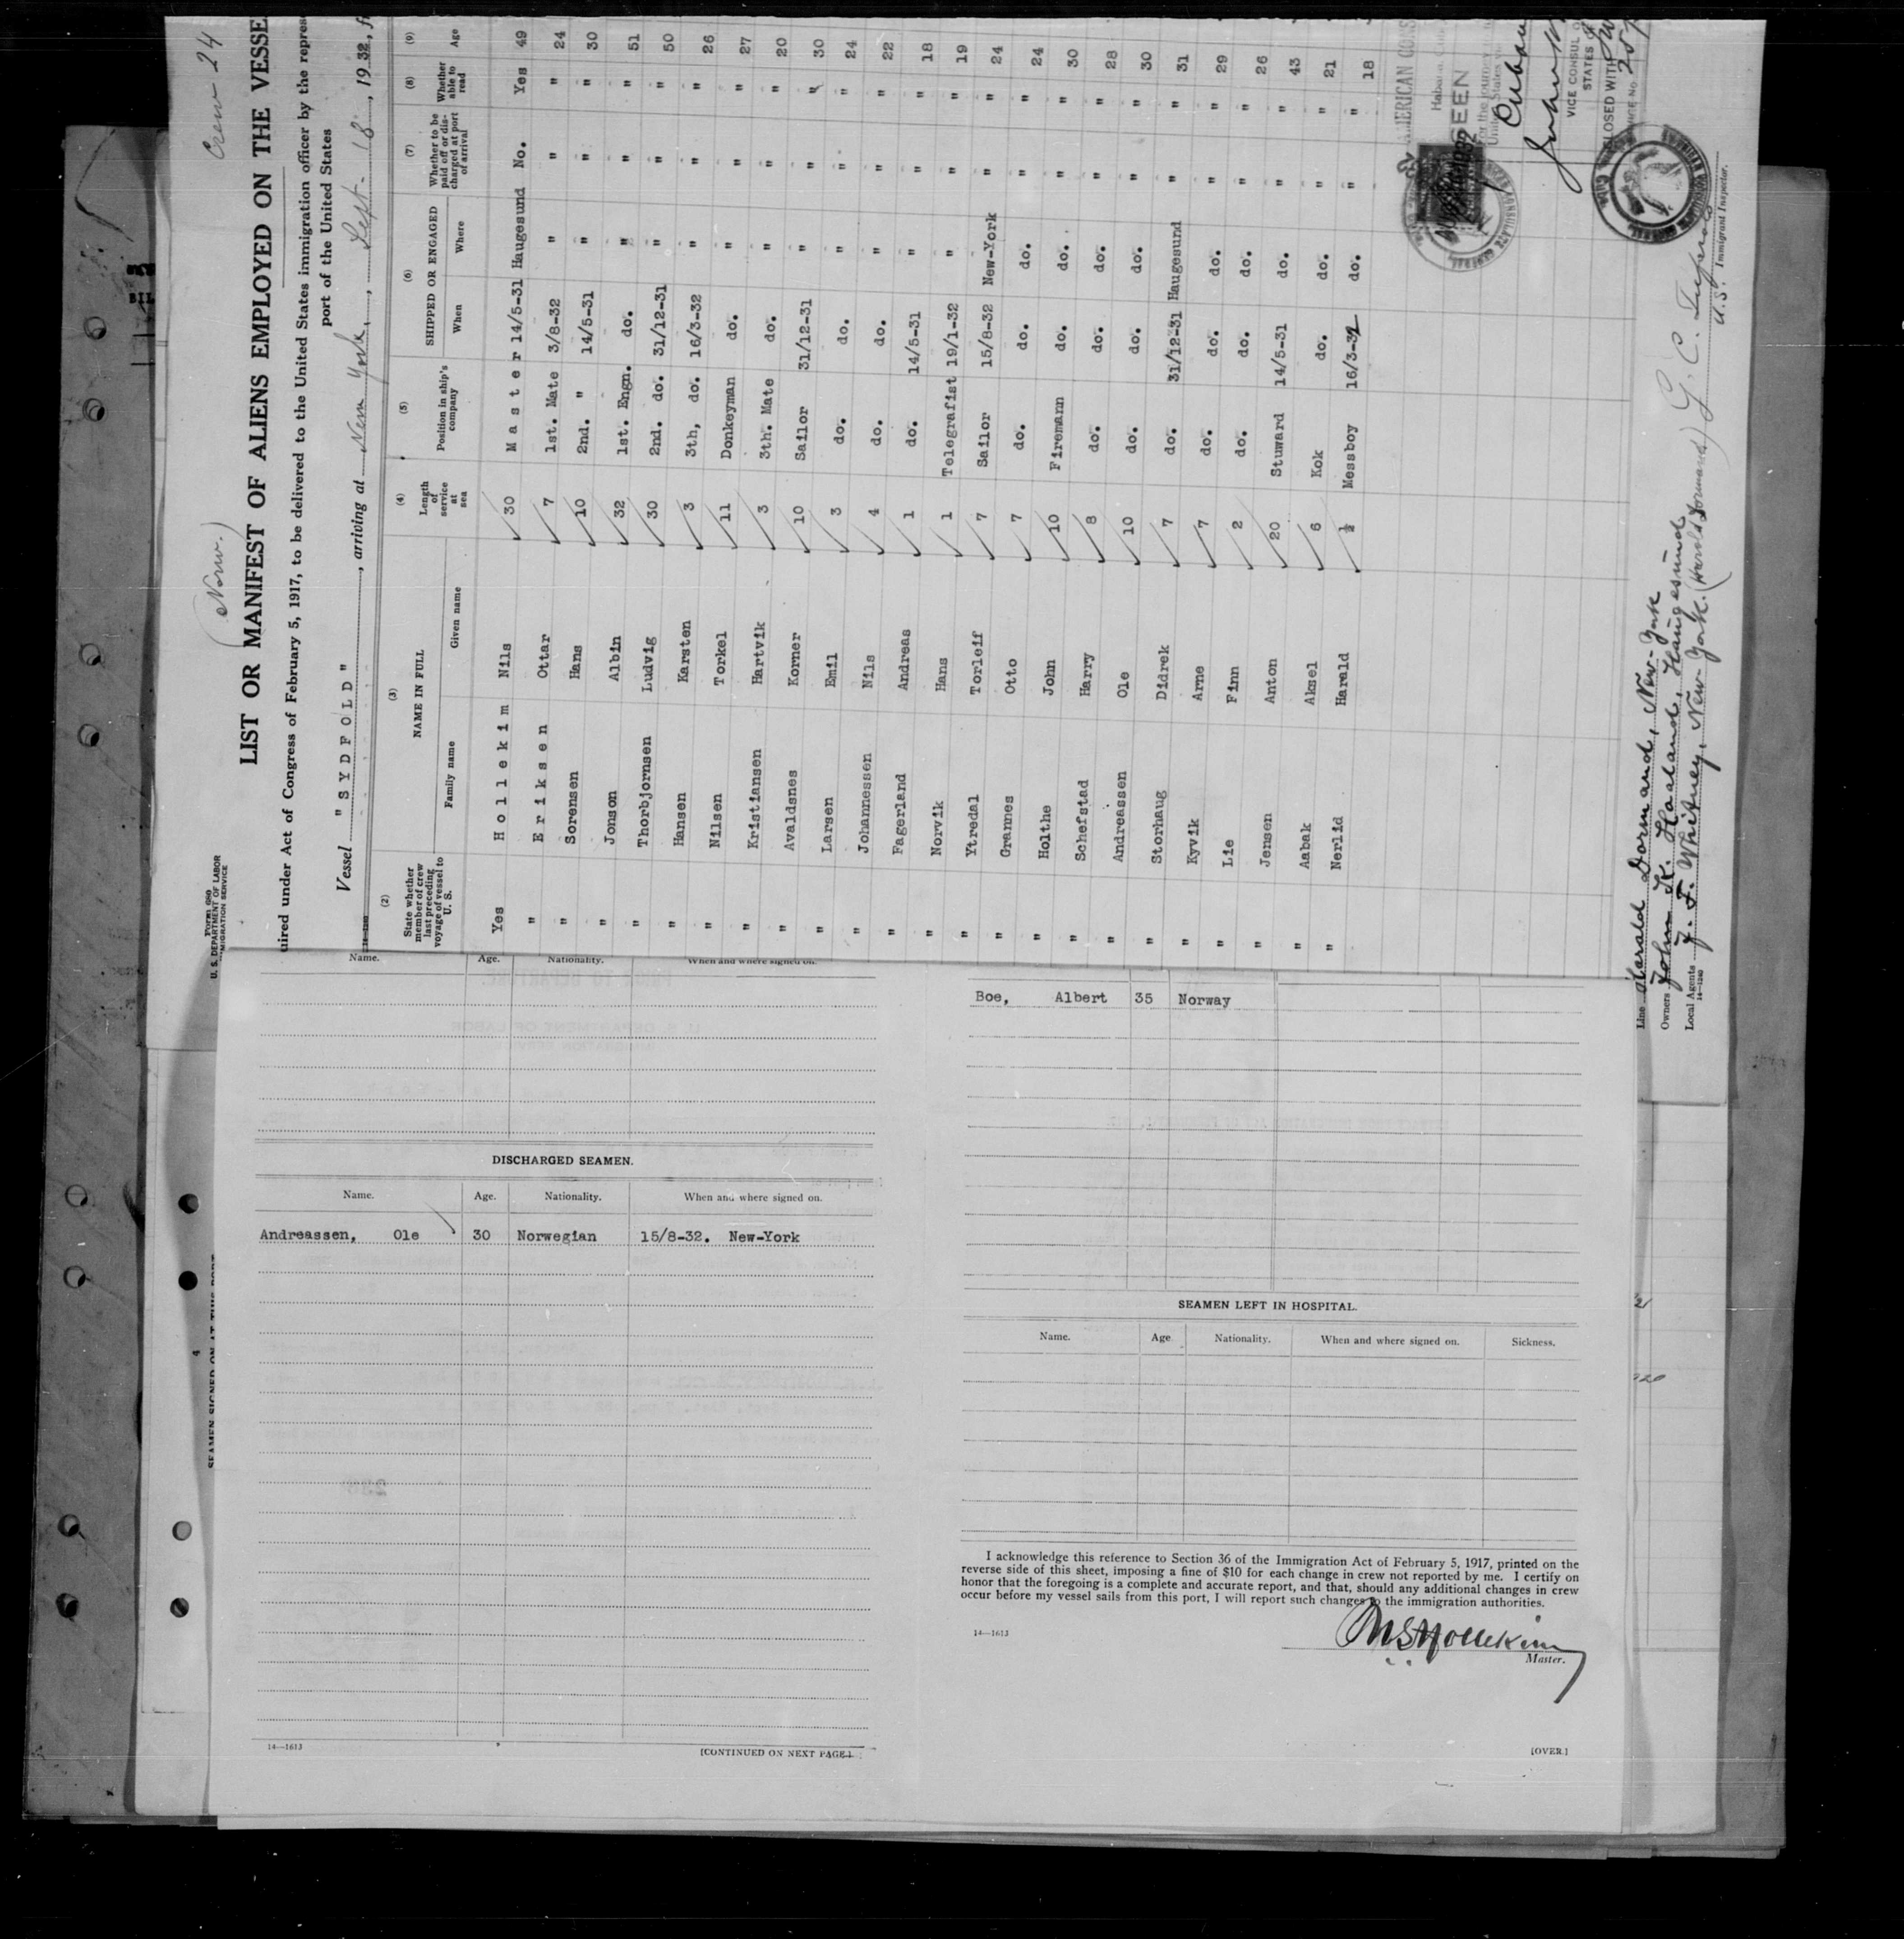 Form 680
U. S. DEPARTMENT OF LABOR
IMMIGRATION SERVICE
(Norw.)
Crew 24
LIST OR MANIFEST OF ALIENS EMPLOYED ON THE VESSE
uired under Act of Congress of February 5, 1917, to be delivered to the United States immigration officer by the repres
port of the United States
Vessel "SYDFOLD", arriving at New York, Sept- 18, 1932, f
(2) (3) (4) (5) (6) (7) (8) (9)
State whether member of crew last preceding voyage of vessel to U. S. NAME IN FULL Length of service at sea Position in ship's company SHIPPED OR ENGAGED Whether to be paid off or discharged at port of arrival Whether able to read Age
Family name Given name When Where
Yes Hollekim Nils 30 Master 14/5-31 Haugesund No. Yes 49
" Eriksen Ottar 7 1st. Mate 3/8-32 " " " 24
" Sorensen Hans 10 2nd. " 14/5-31 " " " 30
" Jonson Albin 32 1st. Engn. do. " " " 51
" Thorbjornsen Ludvig 30 2nd. do. 31/12-31 " " " 50
" Hansen Karsten 3 3th, do. 16/3-32 " " " 26
" Nilsen Torkel 11 Donkeyman do. " " " 27
" Kristiansen Hartvik 3 3th. Mate do. " " " 20
" Avaldsnes Korner 10 Sailor 31/12-31 " " " 30
" Larsen Emil 3 do. do. " " " 24
" Johannessen Nils 4 do. do. " " " 22
" Fagerland Andreas 1 do. 14/5-31 " " " 18
" Norvik Hans 1 Telegrafist 19/1-32 " " " 19
" Ytredal Torleif 7 Sailor 15/8-32 New-York " " 24
" Grannes Otto 7 do. do. do. " " 24
" Holthe John 10 Firemann do. do. " " 30
" Schefstad Harry 8 do. do. do. " " 28
" Andreassen Ole 10 do. do. do. " " 30
" Storhaug Didrek 7 do. 31/12-31 Haugesund " " 31
" Kyvik Arne 7 do. do. do. " " 29
" Lie Finn 2 do. do. do. " " 26
" Jensen Anton 20 Stuward 14/5-31 do. " " 43
" Aabak Aksel 6 Kok do. do. " " 21
" Nerlid Harald ½ Messboy 16/3-32 do. " " 18
AMERICAN CONS
Habana, Cuba
SEEN
for the journey
United States
Cuban
VICE CONSUL O
STATES
LOSED WITH
Line Harald Dormand, New-York
Owners John K. Haaland, Haugesund
Local Agents J. F. Whitney, New-York. (Harold Dormand)
14—1240
U.S. Immigrant Inspector.
Name. Age. Nationality. When and where signed on.
DISCHARGED SEAMEN.
Name. Age. Nationality. When and where signed on.
Andreassen, Ole 30 Norwegian 15/8-32. New-York
14—1613
[CONTINUED ON NEXT PAGE.]
SEAMEN SIGNED ON AT THIS PORT
4
Boe, Albert 35 Norway
SEAMEN LEFT IN HOSPITAL.
Name. Age. Nationality. When and where signed on. Sickness.
I acknowledge this reference to Section 36 of the Immigration Act of February 5, 1917, printed on the
reverse side of this sheet, imposing a fine of $10 for each change in crew not reported by me. I certify on
honor that the foregoing is a complete and accurate report, and that, should any additional changes in crew
occur before my vessel sails from this port, I will report such changes to the immigration authorities.
14—1613
N S Hollekim
Master.
[OVER.]